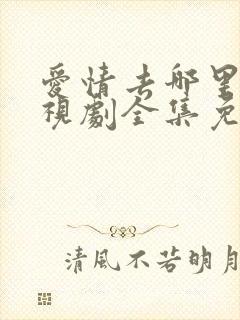 愛情去哪里
視劇全集免
清風不若明月